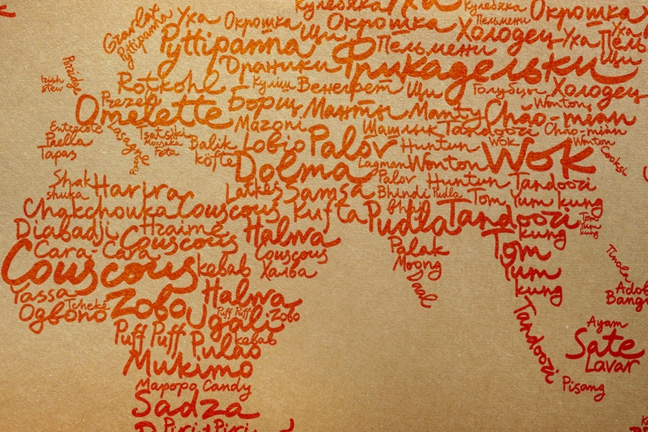 Кулебяка Уха Кулебяка
Gravlax Уха Окрошка Окрошка Пельмени Окрошка
Pyttipanna Щи Холодец Уха
Pyttipanna Пельмени Щи
Porridge Драники Фрикадельки
Irish stew Rotkohl Куліш Венегрет Щи Голубцы Холодец
Prezel Борщ Манты Manty Wontons
Omelette Chão-mian
Entrecote Lasagne Tsatsiki Mazoni Шашлык Tandoori Chão-mian
Paella Mussaka Balik Lobio Palov Huntun Wok Wonton
Tapas Feta köfte Dolma Lagman Wonton Wok
Shakshuka Harira Latkes Samsa Palov Huntun Tandoori
Chakchouka Couscous Kufta Bhindi Pudla Tom Yum kung
Diabadji Hraime Halwa Pudla Tandoori
Cara-Cara Couscous Couscous Palak Tom Yum kung
Couscous kebab Халва Moong
Yassa Tcheke Zobo Halwa Daal
Ogbono Puff Puff Zobo
Ugali Tandoori Ayam
Puff Puff Pulao kebab Sate
Mukimo Lavar
Mapopo Candy Pisang
Sadza
Piri Piri